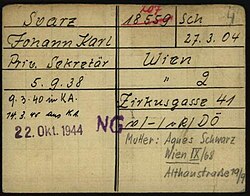 Svarz 18559 Sch 4
107
Johann Karl 27.3.04
Priv. Sekretär Wien
5.9.38 " 2
9.3.40 in K.A. Zirkusgasse 41
14.3.40 aus K.A.
22. Okt. 1944 NG DÖ
Mutter: Agnes Schwarz
Wien IX/68
Althanstraße